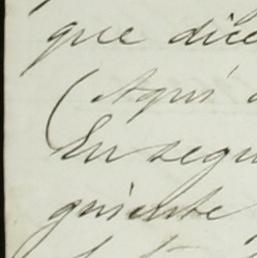 que dice
(Aquí
En segu
guiente